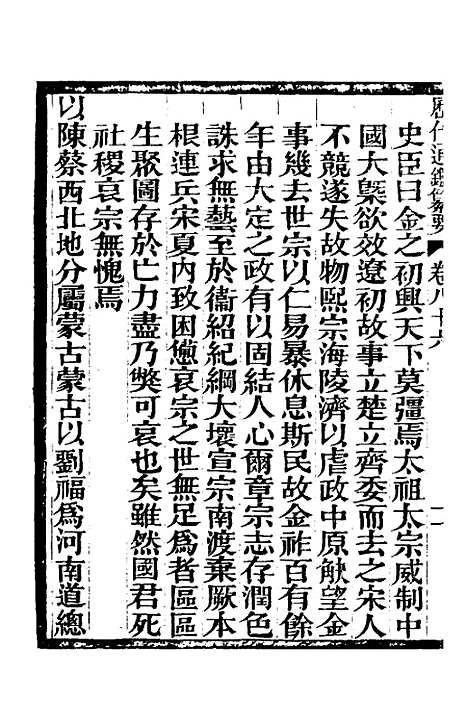 歷代通鑑纂要 卷八十六
史臣曰金之初興天下莫彊焉太祖太宗威制中
國大槩欲效遼初故事立楚立齊委而去之宋人
不競遂失故物熙宗海陵濟以虐政中原觖望金
事幾去世宗以仁易暴休息斯民故金祚百有餘
年由大定之政有以固結人心爾章宗志存潤色
誅求無藝至於衞紹紀綱大壞宣宗南渡棄厥本
根連兵宋夏内致困憊哀宗之世無足爲者區區
生聚圖存於亡力盡乃斃可哀也矣雖然國君死
社稷哀宗無愧焉
以陳蔡西北地分屬蒙古蒙古以劉福爲河南道總